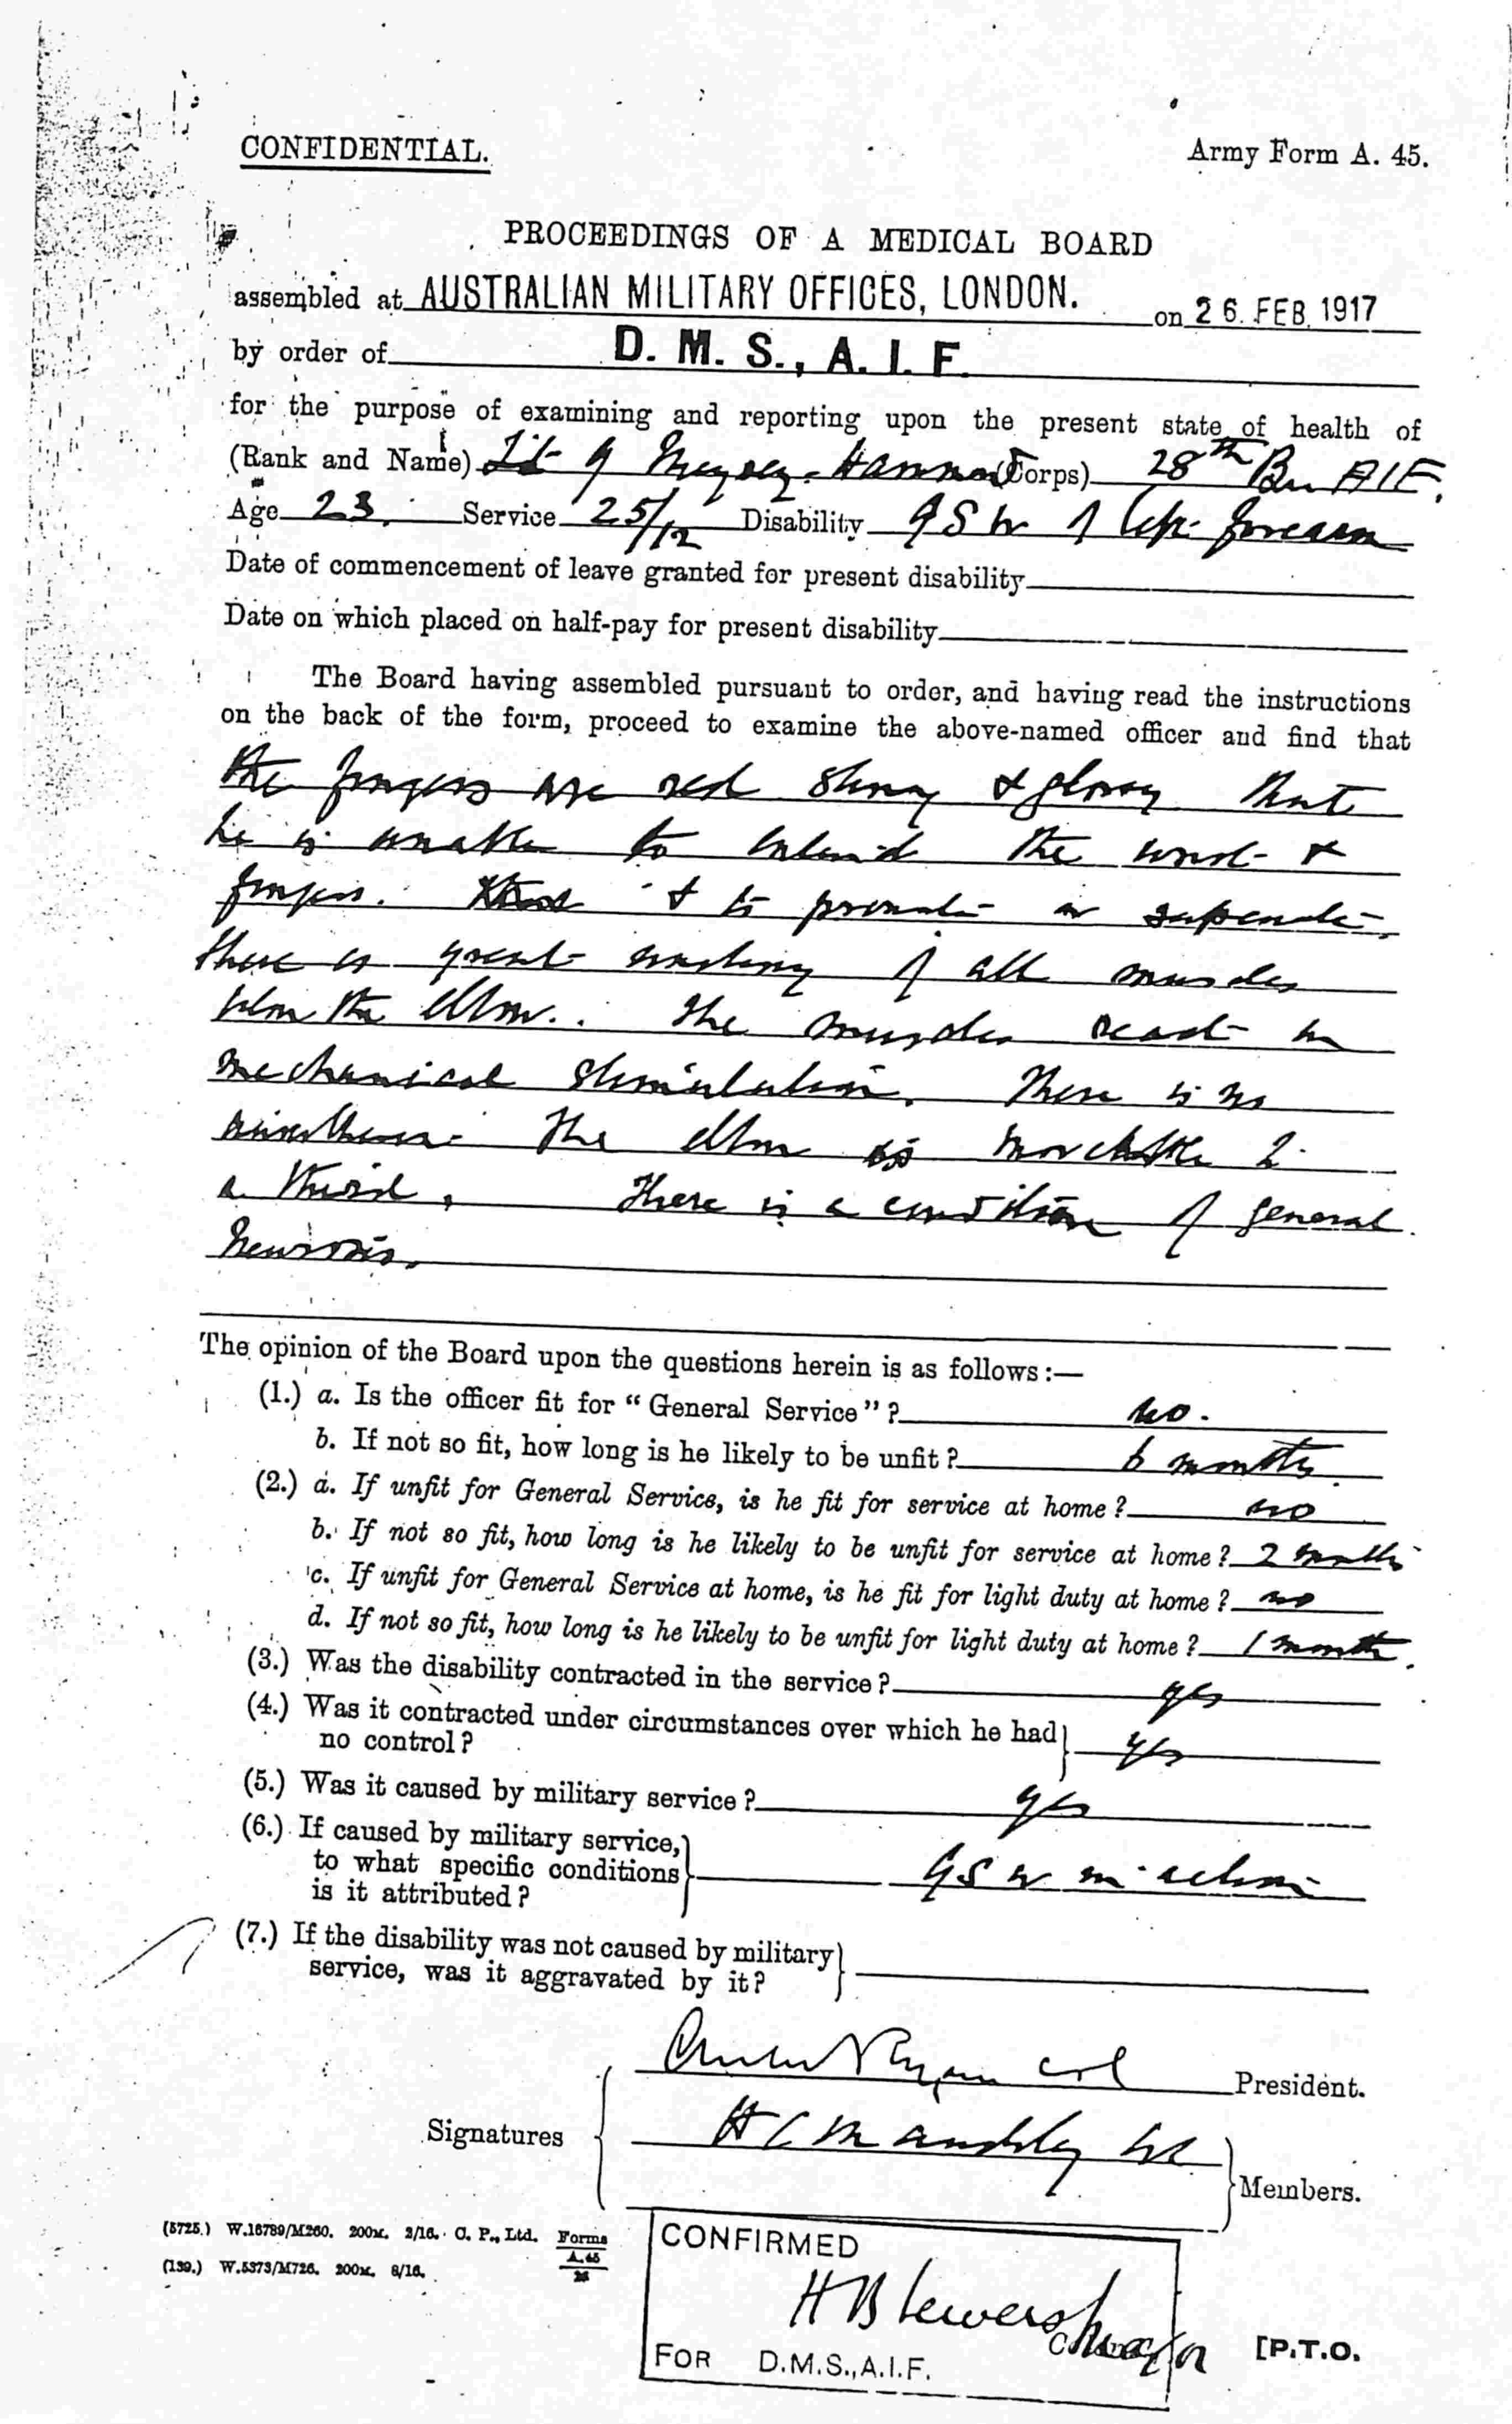 CONFIDENTIAL.
Army Form A. 45.
PROCEEDINGS OF A MEDICAL BOARD
assembled at AUSTRALIAN MILITARY OFFICES, LONDON. on 26. FEB. 1917
by order of D. M. S., A. I. F.
for the purpose of examining and reporting upon the present state of health of
(Rank and Name) Lt G Meysey-Hammond (Corps) 28th Bn AIF.
Age 23. Service 25/12 Disability GSW of left forearm
Date of commencement of leave granted for present disability
Date on which placed on half-pay for present disability
The Board having assembled pursuant to order, and having read the instructions
on the back of the form, proceed to examine the above-named officer and find that
the fingers are red shiny & glossy that
he is unable to extend the wrist &
fingers. & to pronate or supinate.
there is great wasting of all muscles
below the elbow. The muscles react to
mechanical stimulation. There is no
anaesthesia. The elbow is moveable
a third. There is a condition of general
Neurosis.
The opinion of the Board upon the questions herein is as follows:—
(1.) a. Is the officer fit for "General Service"? no.
b. If not so fit, how long is he likely to be unfit? 6 months.
(2.) a. If unfit for General Service, is he fit for service at home? no
b. If not so fit, how long is he likely to be unfit for service at home? 2 months
c. If unfit for General Service at home, is he fit for light duty at home? no
d. If not so fit, how long is he likely to be unfit for light duty at home? 1 month.
(3.) Was the disability contracted in the service? yes
(4.) Was it contracted under circumstances over which he had
no control? yes
(5.) Was it caused by military service? yes
(6.) If caused by military service,
to what specific conditions
is it attributed? GSW in action
(7.) If the disability was not caused by military
service, was it aggravated by it?
Ryan Col President.
Signatures
H C Maudsley Members.
(5725.) W.16789/M260. 200M. 2/16. C. P., Ltd. Forms
A.45
(139.) W.5373/M726. 200M. 8/16.
CONFIRMED
H B Lewers Major
FOR D.M.S., A.I.F.
[P.T.O.